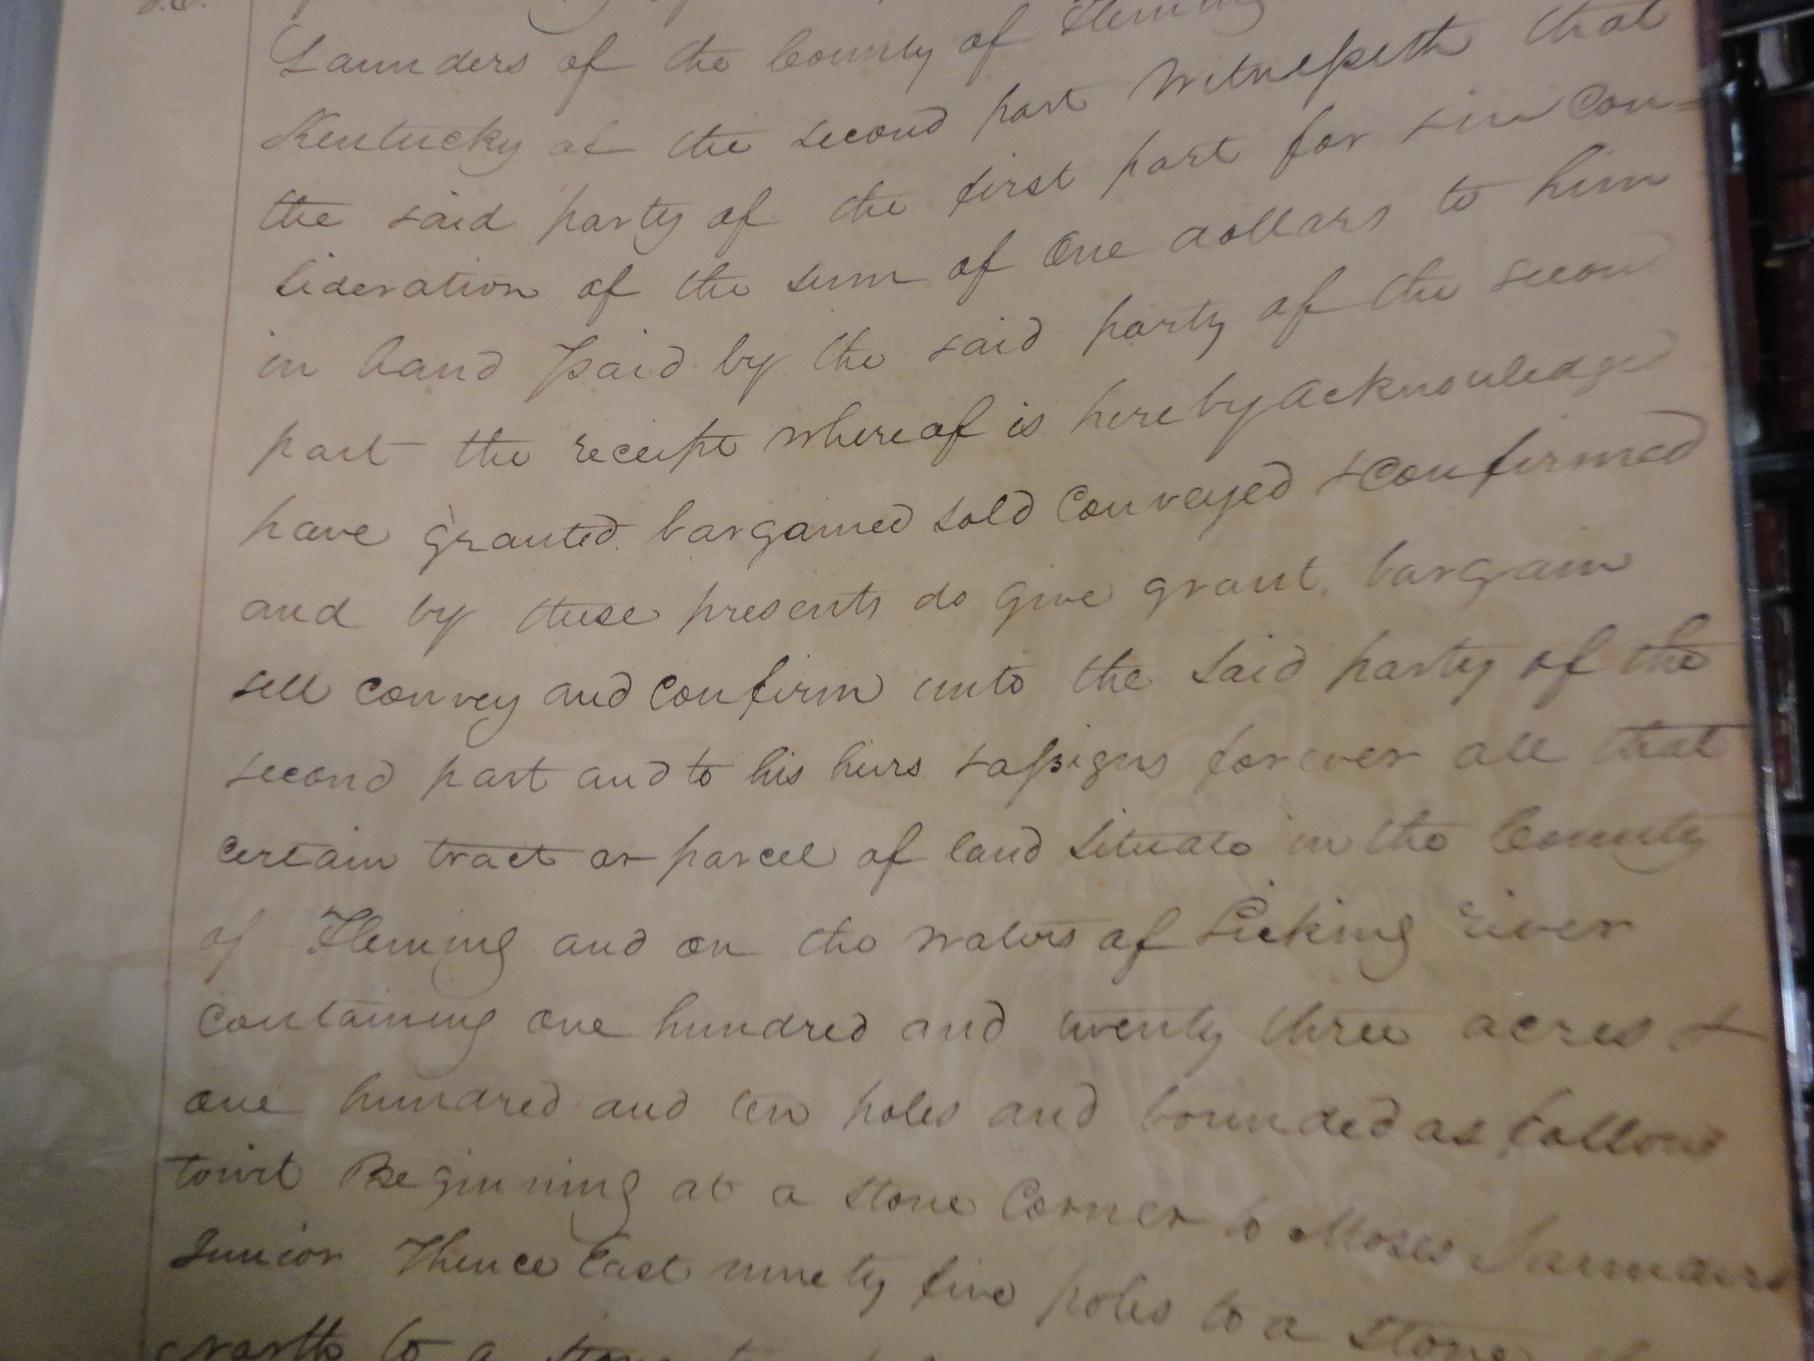 Saunders of the County of Fleming
Kentucky of the second part Witnesseth that
the said party of the first part for & in Con=
sideration of the sum of One dollars to him
in hand paid by the said party of the second
part the receipt whereof is hereby acknowledged
have granted bargained sold Conveyed & Confirmed
and by these presents do give grant, bargain
sell convey and confirm unto the said party of the
second part and to his heirs & assigns forever all that
certain tract or parcel of land situate in the County
of Fleming and on the waters of Licking River
Containing one hundred and twenty three acres &
one hundred and ten poles and bounded as follows
towit Beginning at a stone Corner to Moses Saunders
Junior Thence East ninety five poles to a stone
north to a stone